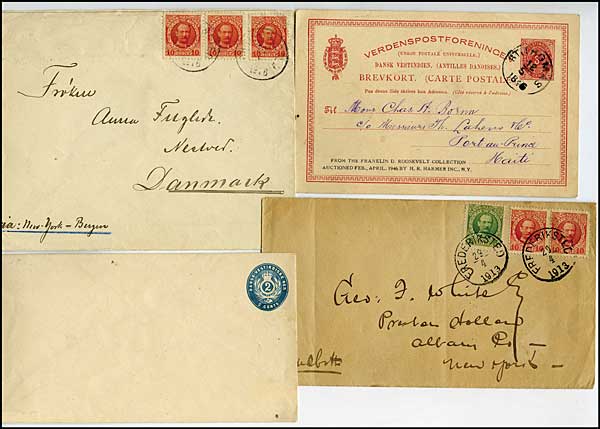 10 10 10 10
Frøken
Anna
Nestved.
Danmark
via: New-York – Bergen
VERDENSPOSTFORENINGEN
(UNION POSTALE UNIVERSELLE.)
DANSK VESTINDIEN. (ANTILLES DANOISES.)
BREVKORT. (CARTE POSTALE)
Paa denne Side skrives kun Adressen. (Côté réservé à l'adresse.)
ST. THOMAS
Til Mons Chas H. Borna
c/o Messieurs Th. Lahens & Co.
Port au Prince
Haiti
FROM THE FRANKLIN D. ROOSEVELT COLLECTION
AUCTIONED FEB., APRIL, 1946 BY H. R. HARMER INC., N.Y.
2
2 CENTS
10 10
FREDERIKSTED
29
4
1913
FREDERIKSTED
29
4
1913
Geo. F. White
Preston Hollow
Albany Co –
New York –